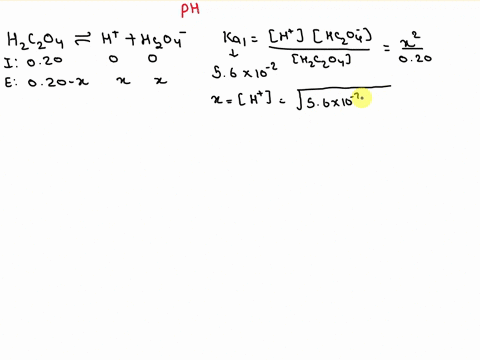 PH
H₂C₂O₄ ⇌ H⁺ + HC₂O₄⁻
I: 0.20 0 0
E: 0.20-x x x
Ka₁ = [H⁺] [HC₂O₄⁻] / [H₂C₂O₄] = x² / 0.20
↓
5.6 × 10⁻²
x = [H⁺] = √5.6×10⁻²